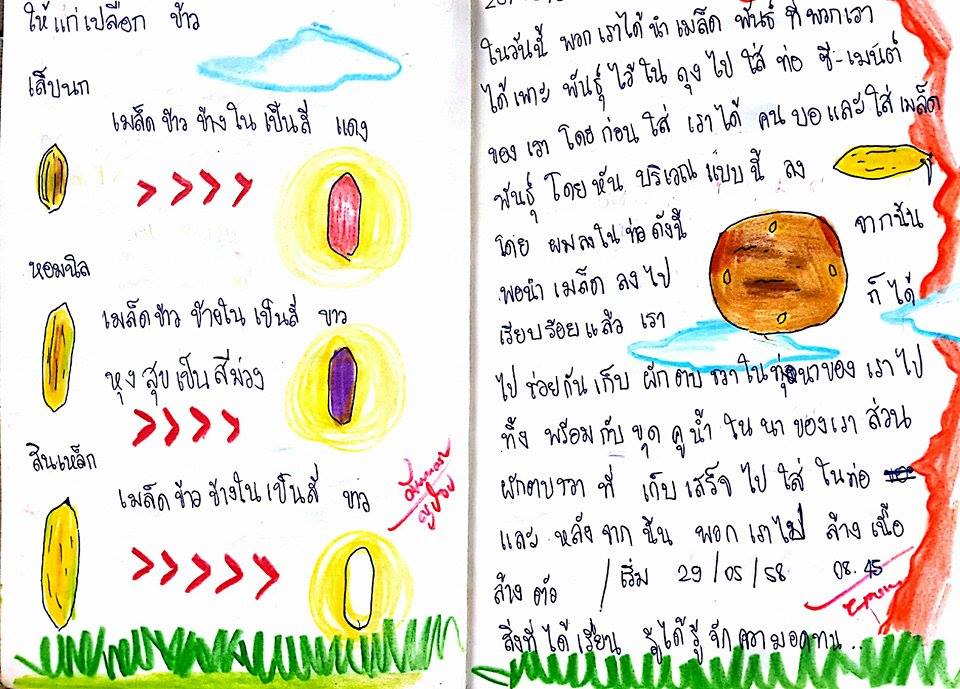 ให้แก่เปลือก ข้าว
เล็บนก
เมล็ดข้าว ข้างใน เป็นสี แดง
หอมนิล
เมล็ดข้าว ข้างใน เป็นสี ขาว
หุง สุข เป็น สีม่วง
สินเหล็ก
เมล็ด ข้าว ข้างใน เป็นสี ขาว
ในวันนี้ พวกเราได้นำ เมล็ด พันธุ์ ที่พวกเรา
ได้เพาะ พันธุ์ ไว้ใน ถุง ไป ใส่ ท่อ ซี-เมนต์
ของ เรา โดย ก่อน ใส่ เราได้ คน บอ และใส่ เมล็ด
พันธุ์ โดย หัน บริเวณ แบบนี้ ลง
โดย ผมลงใน ท่อ ดังนี้ จากนั้น
พอนำ เมล็ด ลง ไป
เรียบร้อย แล้ว เรา ก็ ได้
ไป ช่อยกัน เก็บ ผักตบชวา ในทุ่งนาของ เรา ไป
ทิ้ง พร้อม กับ ขุด คูน้ำ ใน นา ของเรา ส่วน
ผักตบชวา ที่ เก็บ เสร็จ ไป ใส่ ในท่อ
และ หลัง จาก นั้น พวก เราไป ล้าง เนื้อ
ล้าง ตัว / เริ่ม 29/05/58 08.45
สิ่งที่ ได้ เรียน รู้ได้ รู้ จัก ความอดทน..